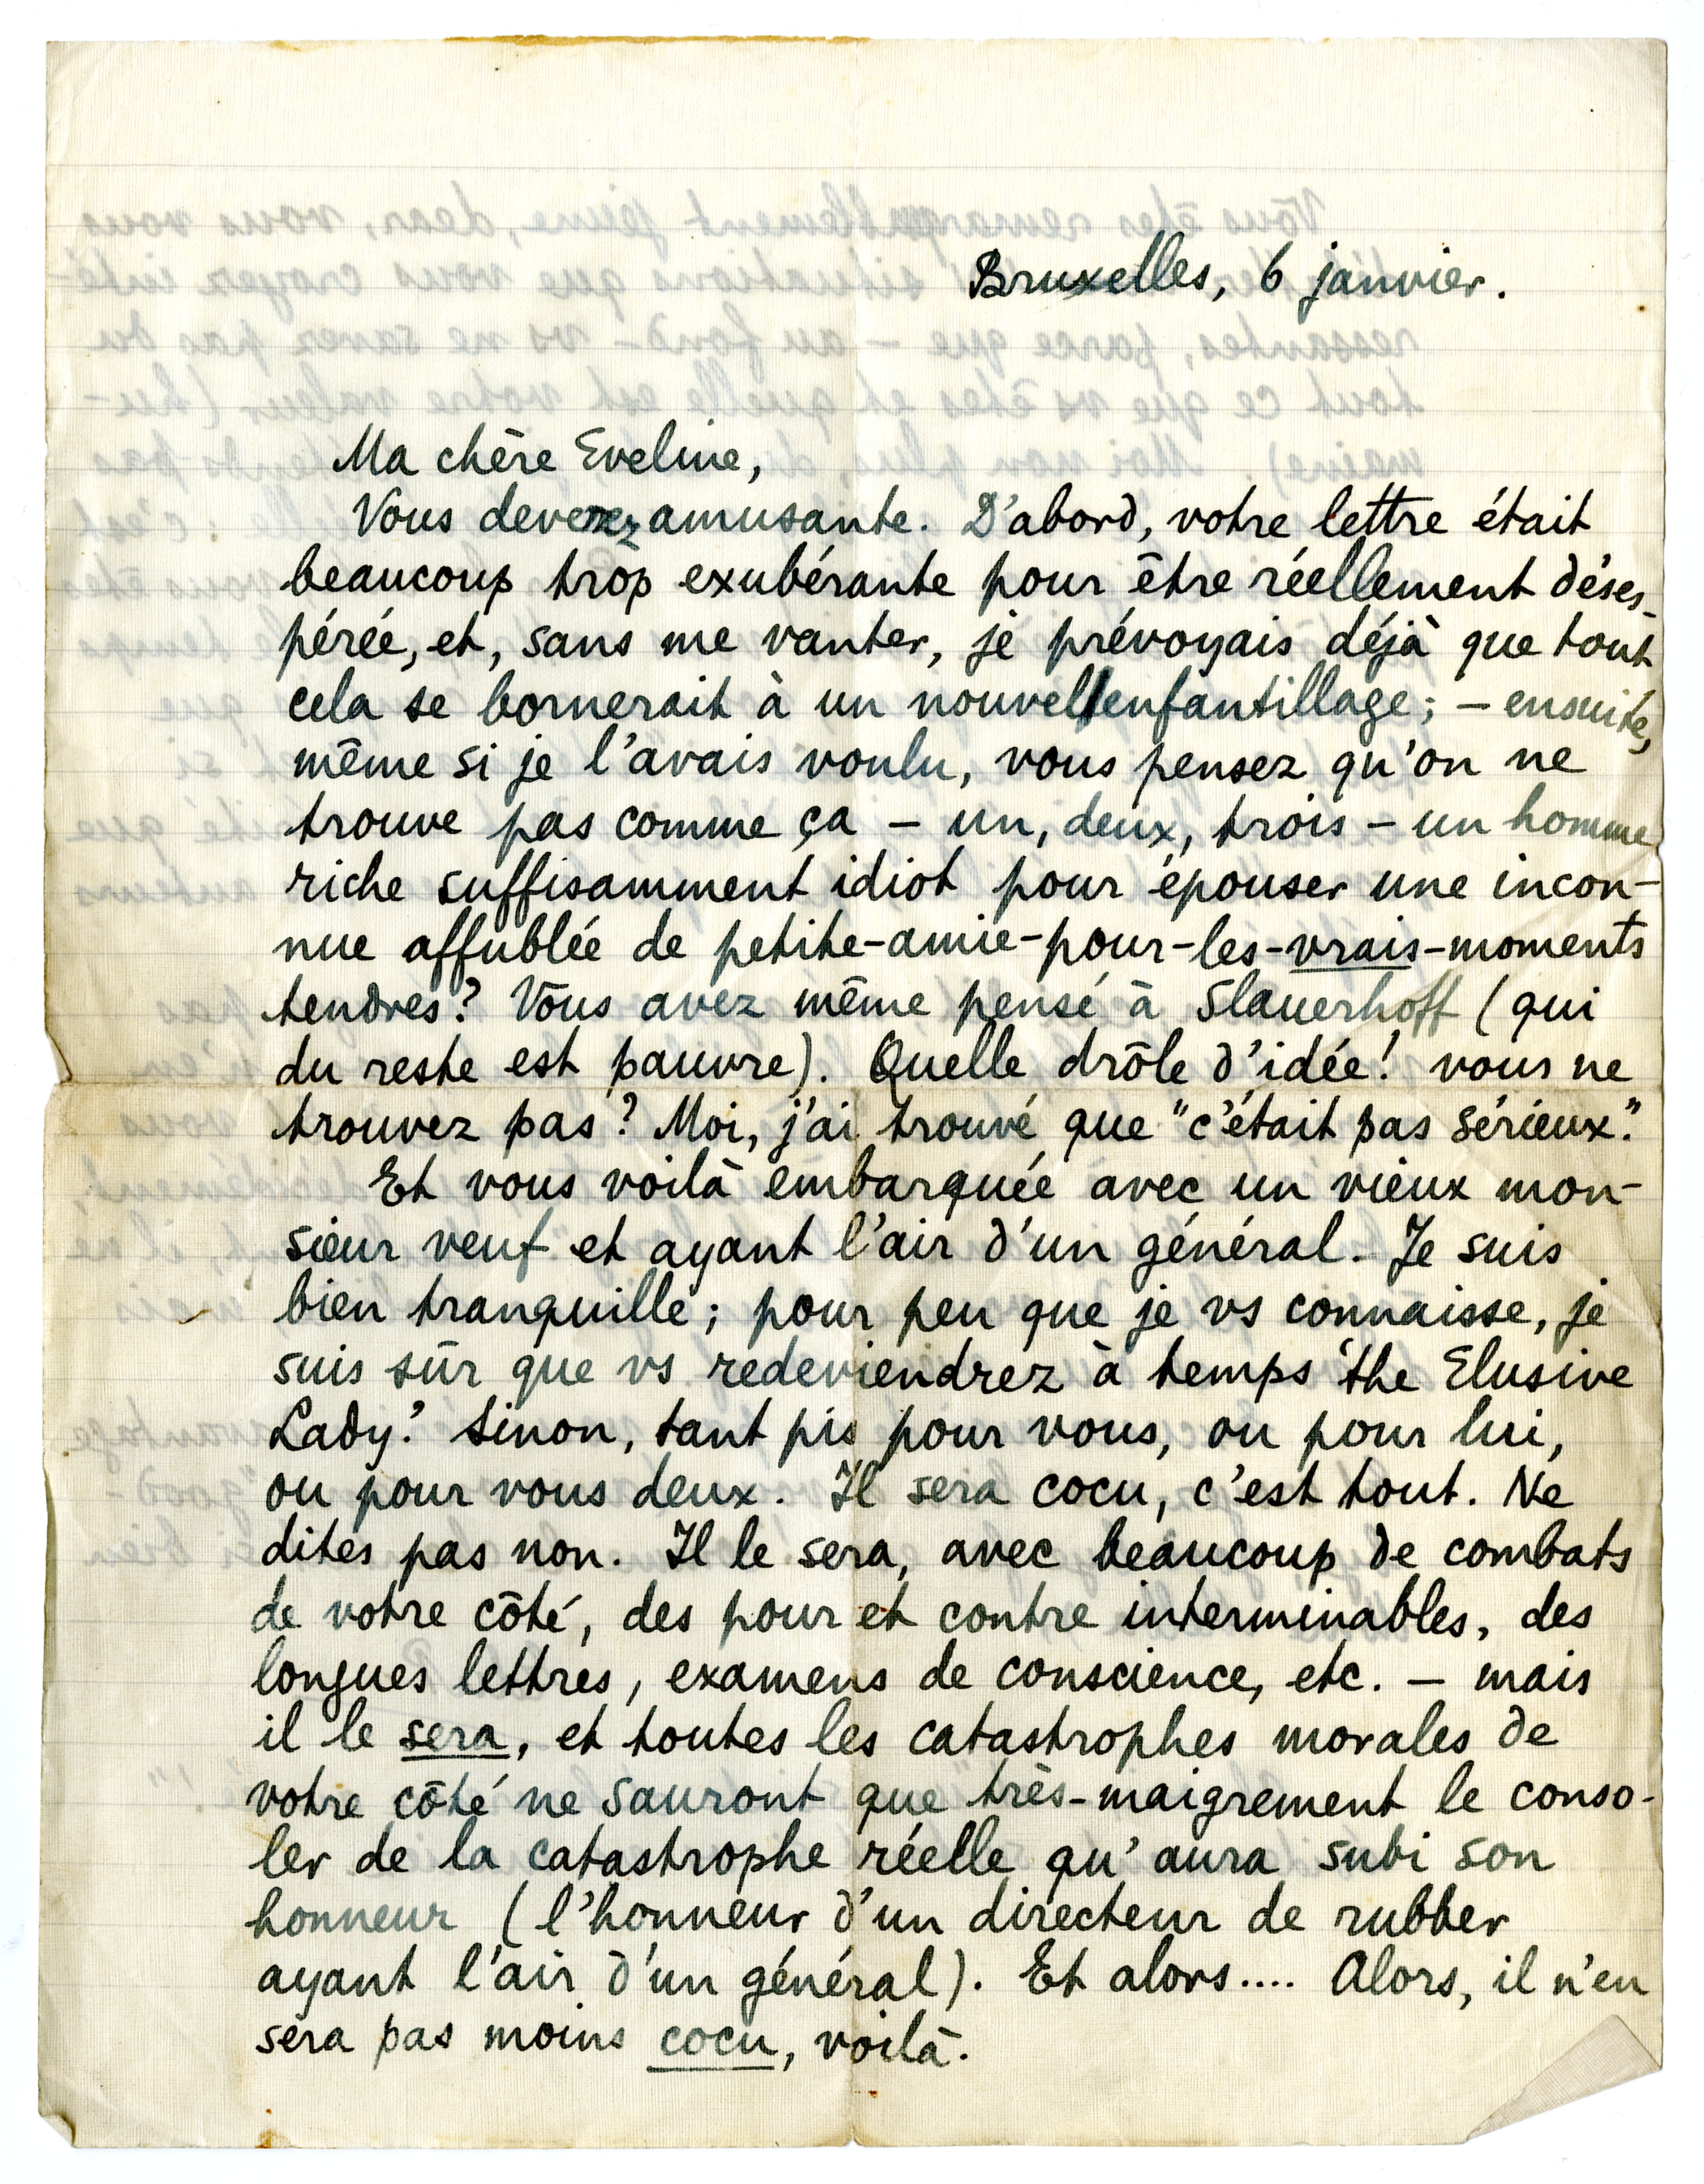 Bruxelles, 6 janvier.
Ma chère Eveline,
Vous devenez amusante. D'abord, votre lettre était
beaucoup trop exubérante pour être réellement déses-
pérée, et, sans me vanter, je prévoyais déjà que tout
cela se bornerait à un nouvel enfantillage; – ensuite,
même si je l'avais voulu, vous pensez qu'on ne
trouve pas comme ça – un, deux, trois – un homme
riche suffisamment idiot pour épouser une incon-
nue affublée de petite-amie-pour-les-vrais-moments
tendres? Vous avez même pensé à Slauerhoff (qui
du reste est pauvre). Quelle drôle d'idée! vous ne
trouvez pas? Moi, j'ai trouvé que "c'était pas sérieux."
Et vous voilà embarquée avec un vieux mon-
sieur veuf et ayant l'air d'un général. Je suis
bien tranquille; pour peu que je vs connaisse, je
suis sûr que vs redeviendrez à temps 'the Elusive
Lady.' Sinon, tant pis pour vous, ou pour lui,
ou pour vous deux. Il sera cocu, c'est tout. Ne
dites pas non. Il le sera, avec beaucoup de combats
de votre côté, des pour et contre interminables, des
longues lettres, examens de conscience, etc. – mais
il le sera, et toutes les catastrophes morales de
votre côté ne sauront que très-maigrement le conso-
ler de la catastrophe réelle qu'aura subi son
honneur (l'honneur d'un directeur de rubber
ayant l'air d'un général). Et alors.... Alors, il n'en
sera pas moins cocu, voilà.